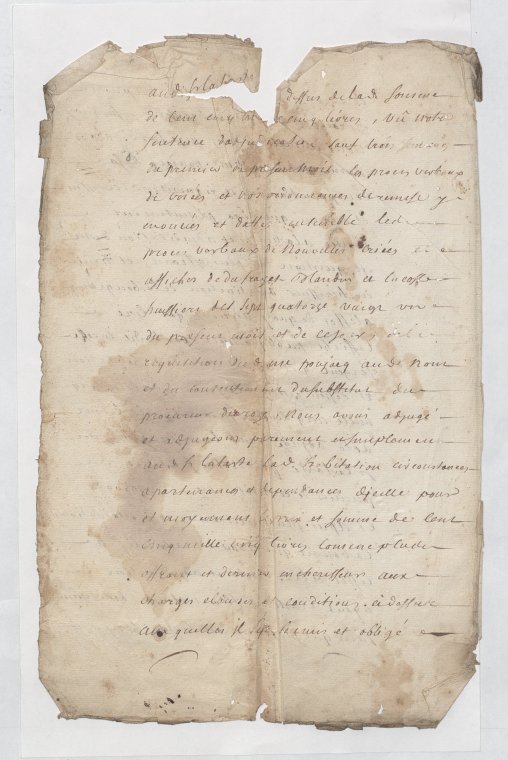 aud. Sr. Latast dessus de lad. somme
de Cent cinq cinq livres, vu notre
Sentence d'adjudication sauf trois
du premier du present mois les procès verbaux
de criées et nos ordonnances de remise y
enoncées et dattées ensemble led.
procès verbaux de nouvelles criées et
affiches de dufrazet et
huissiers des sept quatorze vingt un
du present mois et de ce jour
requisition de aud. nom
et du consentement du substitut du
procureur du roy, Nous avons adjugé
et adjugeons purement et simplement
aud. Sr. Lataste lad. habitation circonstances
apartenances et dependances d'jcelle pour
et moyennant prix et somme de Cent
Cinq mille cinq livres comme plus
offrant et dernier encherisseur aux
charges clauses et conditions cy dessus
auxquelles il s'est soumis et obligé